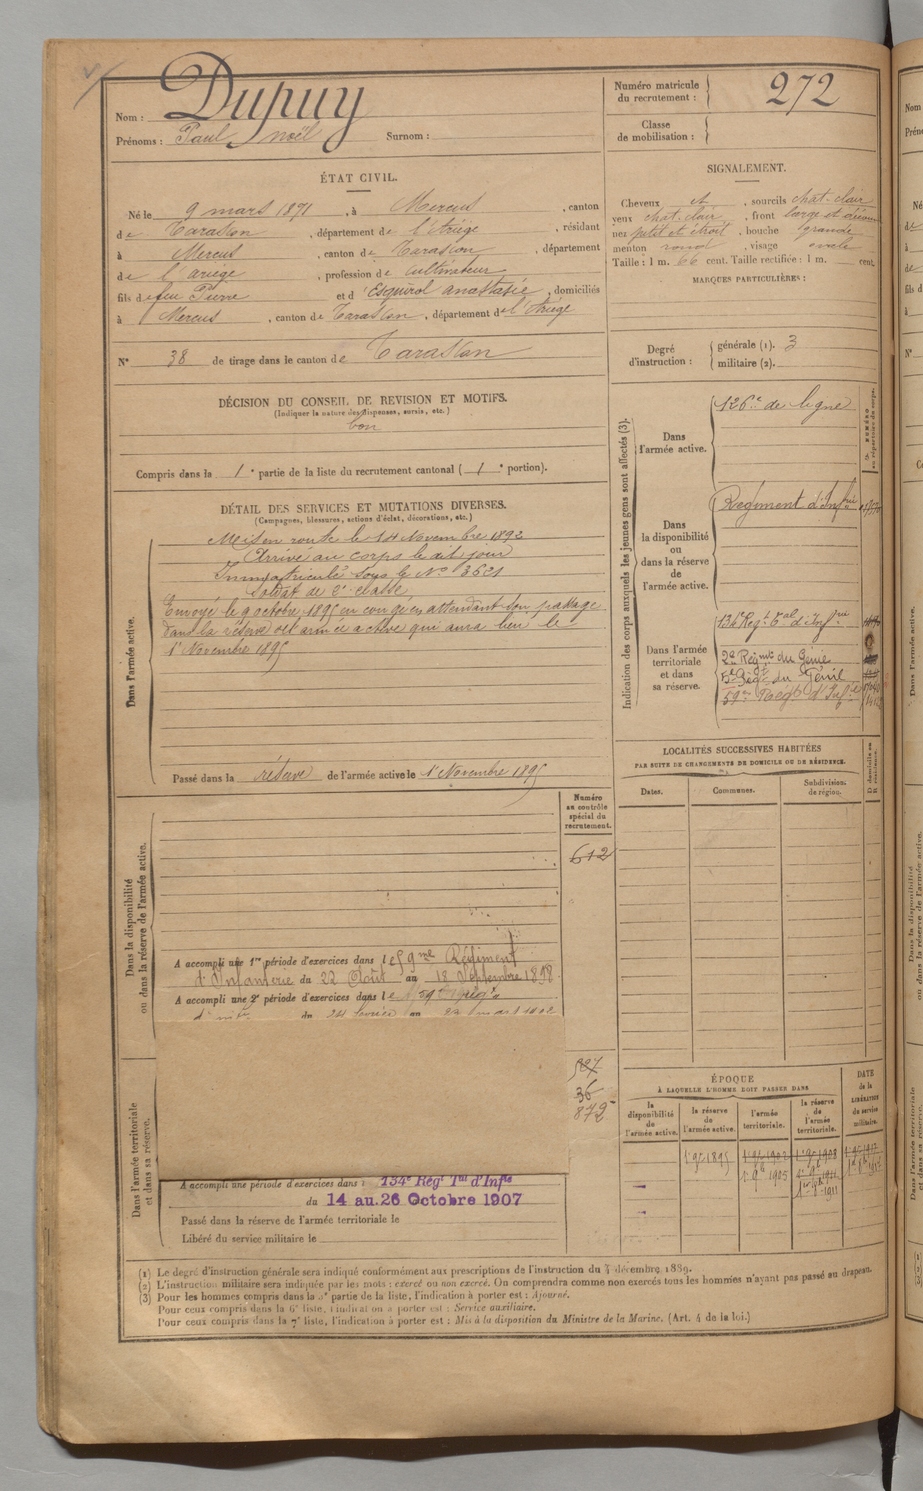 Nom : Dupuy
Prénoms : Paul noël Surnom :
Numéro matricule du recrutement : 272
Classe de mobilisation :
ÉTAT CIVIL.
Né le 9 mars 1871, à Mercus, canton
de Tarascon, département de l'Ariège, résidant
à Mercus, canton de Tarascon, département
de l'ariège, profession de cultivateur
fils de feu Pierre et d'Esquirol anastasie, domiciliés
à Mercus, canton de Tarascon, département de l'Ariège
N° 38 de tirage dans le canton de Tarascon
SIGNALEMENT.
Cheveux et, sourcils chat. clair
yeux chat. clair, front large et
nez petit et étroit, bouche grande
menton rond, visage ovale
Taille : 1 m. 66 cent. Taille rectifiée : 1 m. cent.
MARQUES PARTICULIÈRES :
Degré d'instruction : générale (1). 3
militaire (2).
DÉCISION DU CONSEIL DE REVISION ET MOTIFS.
(Indiquer la nature des dispenses, sursis, etc.)
bon
Compris dans la 1e partie de la liste du recrutement cantonal (1e portion).
DÉTAIL DES SERVICES ET MUTATIONS DIVERSES.
(Campagnes, blessures, actions d'éclat, décorations, etc.)
Dans l'armée active.
Mis en route le 14 Novembre 1892
Arrivé au corps le dit jour
Immatriculé sous le N° 3621
Soldat de 2e classe
Envoyé le 9 octobre 1895 en congé en attendant son passage
dans la réserve de l'armée active qui aura lieu le
1er Novembre 1895
Passé dans la réserve de l'armée active le 1er Novembre 1895
Indication des corps auxquels les jeunes gens sont affectés (3).
Dans l'armée active.
126e de ligne
Dans la disponibilité ou dans la réserve de l'armée active.
Régiment d'Inf
Dans l'armée territoriale et dans sa réserve.
134e Régt d'Inf
2e Régmt du Génie
5e Régt du Génie
59me Régt d'Infie
LOCALITÉS SUCCESSIVES HABITÉES
PAR SUITE DE CHANGEMENTS DE DOMICILE OU DE RÉSIDENCE.
Dates. Communes. Subdivision de région.
Dans la disponibilité ou dans la réserve de l'armée active.
Numéro au contrôle spécial du recrutement.
612
A accompli une 1re période d'exercices dans le 59me Régiment
d'Infanterie du 22 Août au 18 Septembre 1898
A accompli une 2e période d'exercices dans le 59
Dans l'armée territoriale et dans sa réserve.
36
872
A accompli une période d'exercices dans : 134e Régt Tal d'Infie
du 14 au 26 Octobre 1907
Passé dans la réserve de l'armée territoriale le
Libéré du service militaire le
ÉPOQUE
À LAQUELLE L'HOMME DOIT PASSER DANS
la disponibilité de l'armée active.
la réserve de l'armée active.
l'armée territoriale.
la réserve de l'armée territoriale.
DATE de la LIBÉRATION du service militaire.
(1) Le degré d'instruction générale sera indiqué conformément aux prescriptions de l'instruction du 4 décembre 1889.
(2) L'instruction militaire sera indiquée par les mots : exercé ou non exercé. On comprendra comme non exercés tous les hommes n'ayant pas passé au drapeau.
(3) Pour les hommes compris dans la 4e partie de la liste, l'indication à porter est : Ajourné.
Pour ceux compris dans la 6e liste, l'indication à porter est : Service auxiliaire.
Pour ceux compris dans la 7e liste, l'indication à porter est : Mis à la disposition du Ministre de la Marine. (Art. 4 de la loi.)